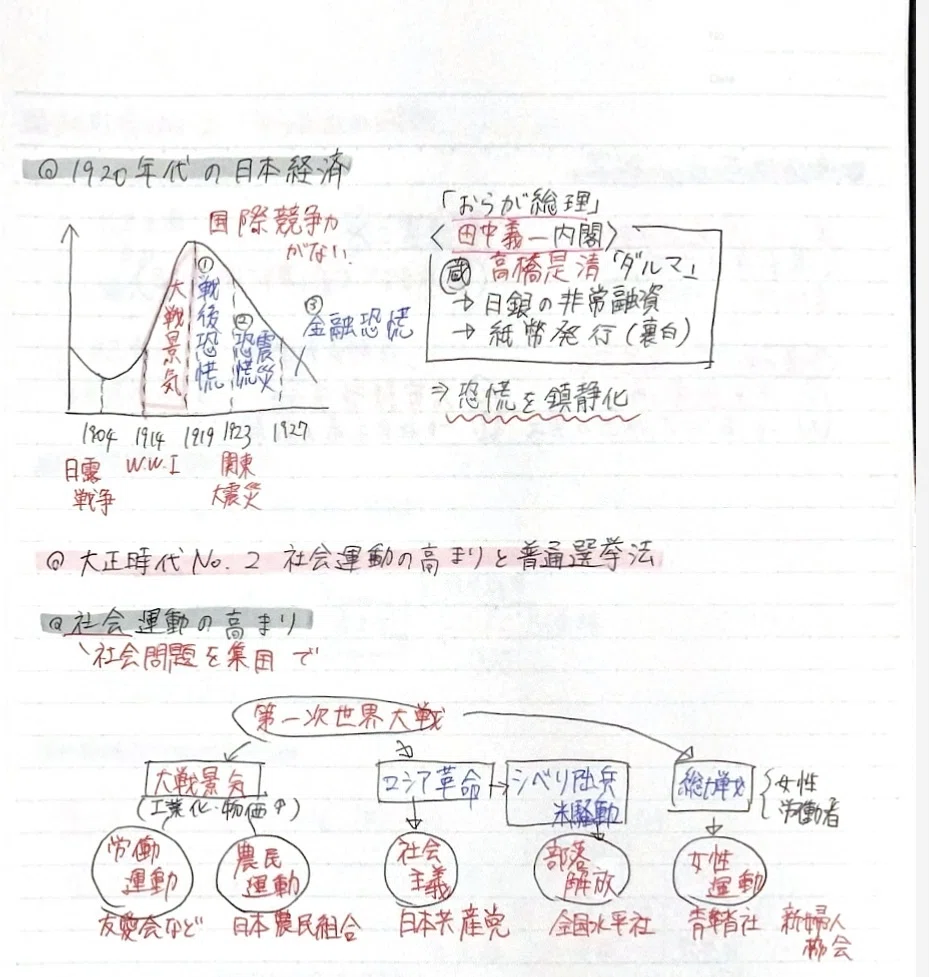 No.
Date
@ 1920年代の日本経済
国際競争力
がない
大戦景気
①戦後恐慌
②震災恐慌
③金融恐慌
1904 1914 1919 1923 1927
日露戦争
W.W.I
関東大震災
「おらが総理」
〈田中義一内閣〉
蔵 高橋是清「ダルマ」
→ 日銀の非常融資
→ 紙幣発行(裏白)
⇒ 恐慌を鎮静化
@ 大正時代No.2 社会運動の高まりと普通選挙法
@ 社会運動の高まり
社会問題を集団で
第一次世界大戦
大戦景気
(工業化・物価↑)
ロシア革命 → シベリア出兵
米騒動
総力戦
女性
労働者
労働運動
農民運動
社会主義
部落解放
女性運動
友愛会など 日本農民組合 日本共産党 全国水平社 青鞜社 新婦人協会